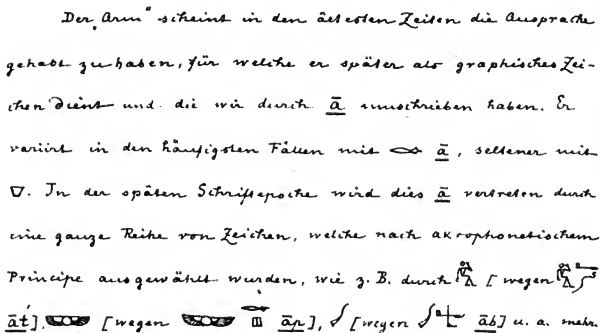 Der „Arm" scheint in den ältesten Zeiten die Aussprache
gehabt zu haben, für welche er später als graphisches Zei-
chen dient und die wir durch ā umschrieben haben. Er
variirt in den häufigsten Fällen mit 𓂂 ā, seltener mit
▽. In der späten Schriftepoche wird dies ā vertreten durch
eine ganze Reihe von Zeichen, welche nach akrophonetischem
Principe ausgewählt wurden, wie z. B. durch [wegen
āt], [wegen āp], [wegen āb] u. a. mehr.